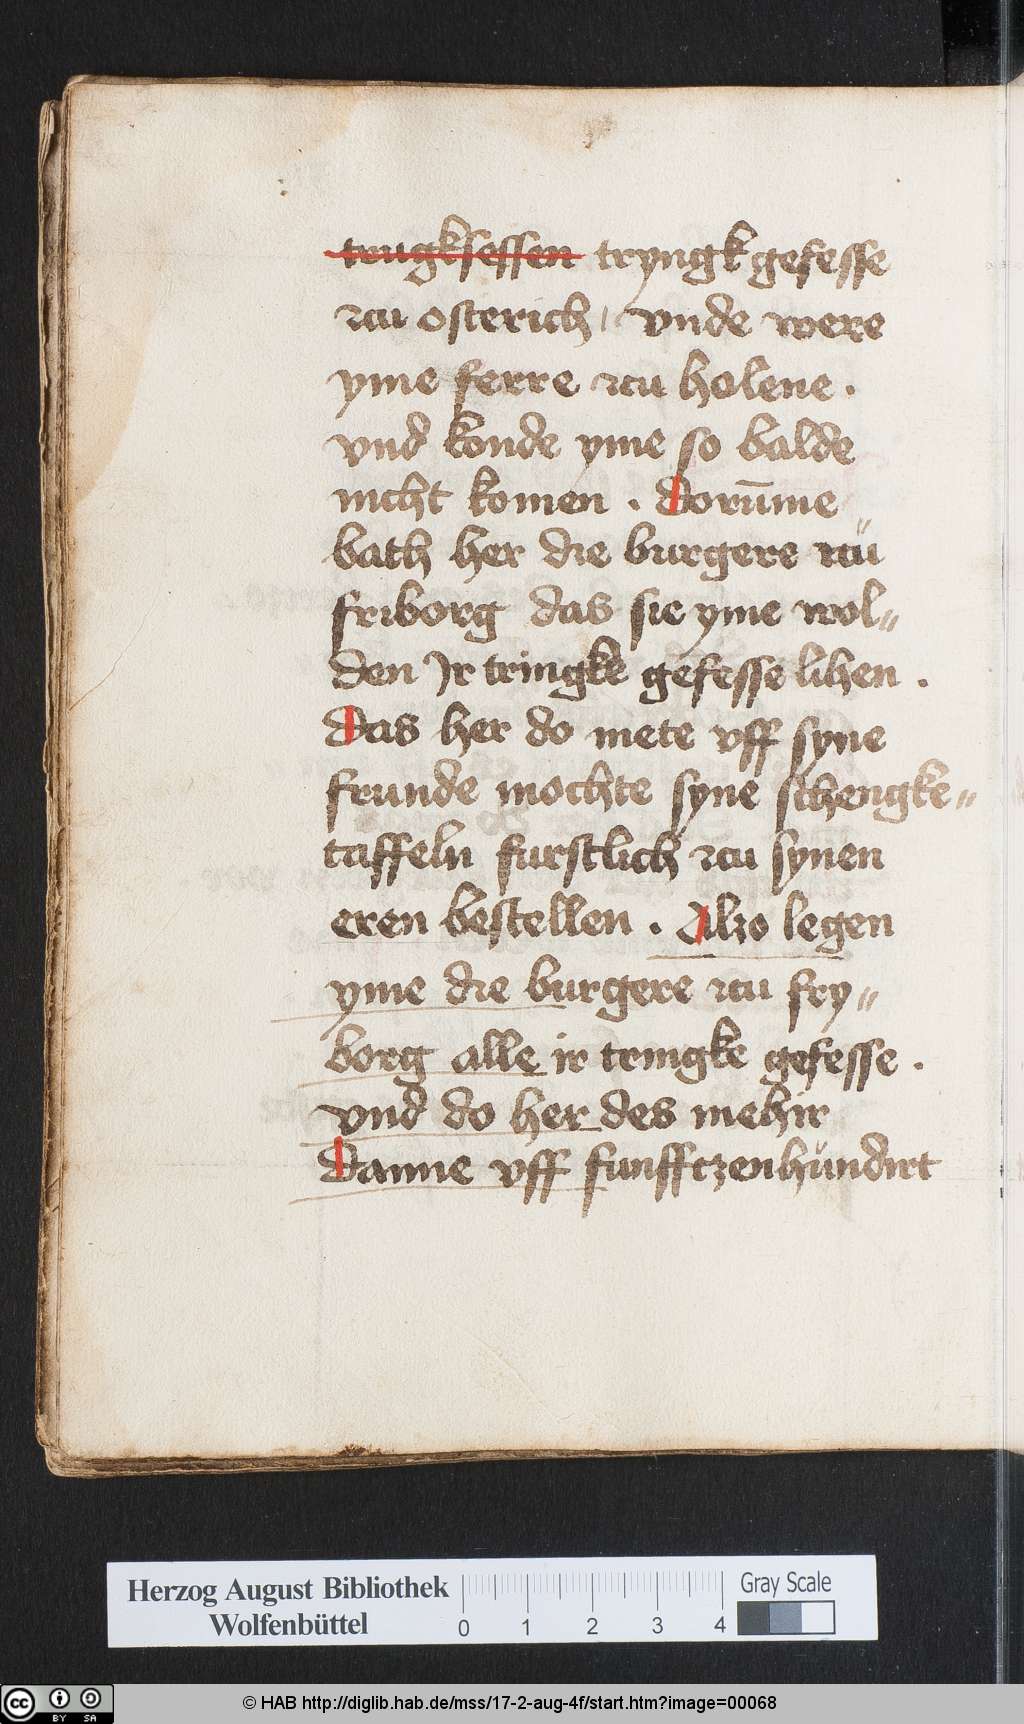 trugksessen tryngk gefesse
zcu osterich / vnde were
yme ferre zcu holene .
vnd konde yme so balde
nicht komen . dorūme
bath her die burgere zcu
friborg das sie yme wol„
den Ir tringke gefesse lihen .
Das her do mete vff syne
frunde mochte syne schengke„
taffeln furstlich zcu synen
eren bestellen . Alzo legen
yme die burgere zcu fry„
borg alle ir tringke gefesse .
vnd do her des mehir
danne vff funfftzenhundirt
Herzog August Bibliothek
Wolfenbüttel
0 1 2 3 4
Gray Scale
cc BY SA
© HAB http://diglib.hab.de/mss/17-2-aug-4f/start.htm?image=00068